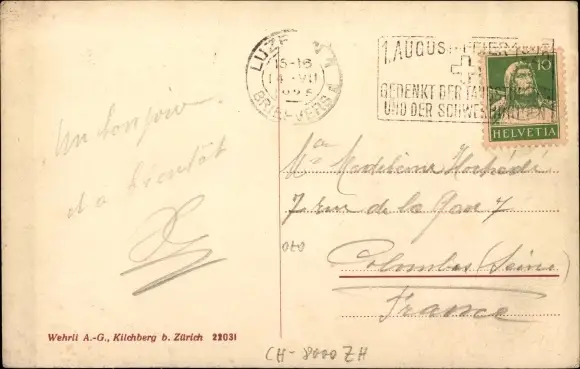 LUZERN
15-16
14. VII
1925
BRIEFVERS.
1. AUGUST-FEIER 1925
GEDENKT DER TAUBSTUMMEN
UND DER SCHWERHÖRIGEN
10
HELVETIA
Un bonjour
et a bientôt
Madeleine
7 rue de la Gare 7
Colombes (Seine)
France
Wehrli A.-G., Kilchberg b. Zürich 22031
CH-8000 ZH